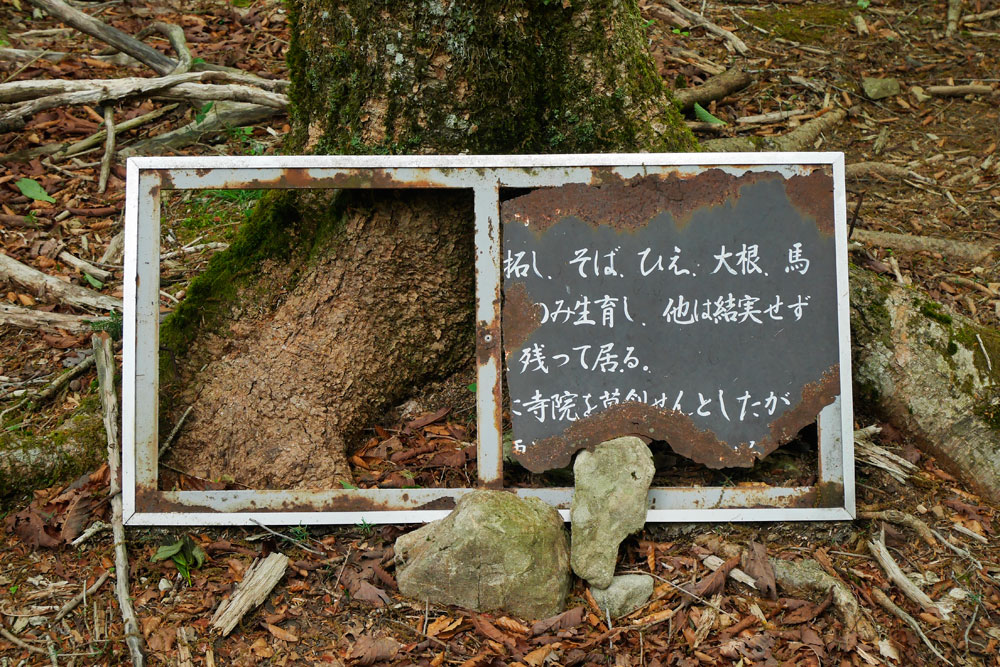 拓し、そば、ひえ、大根、馬
のみ生育し、他は結実せず
残って居る。
に寺院を草創せんとしたが